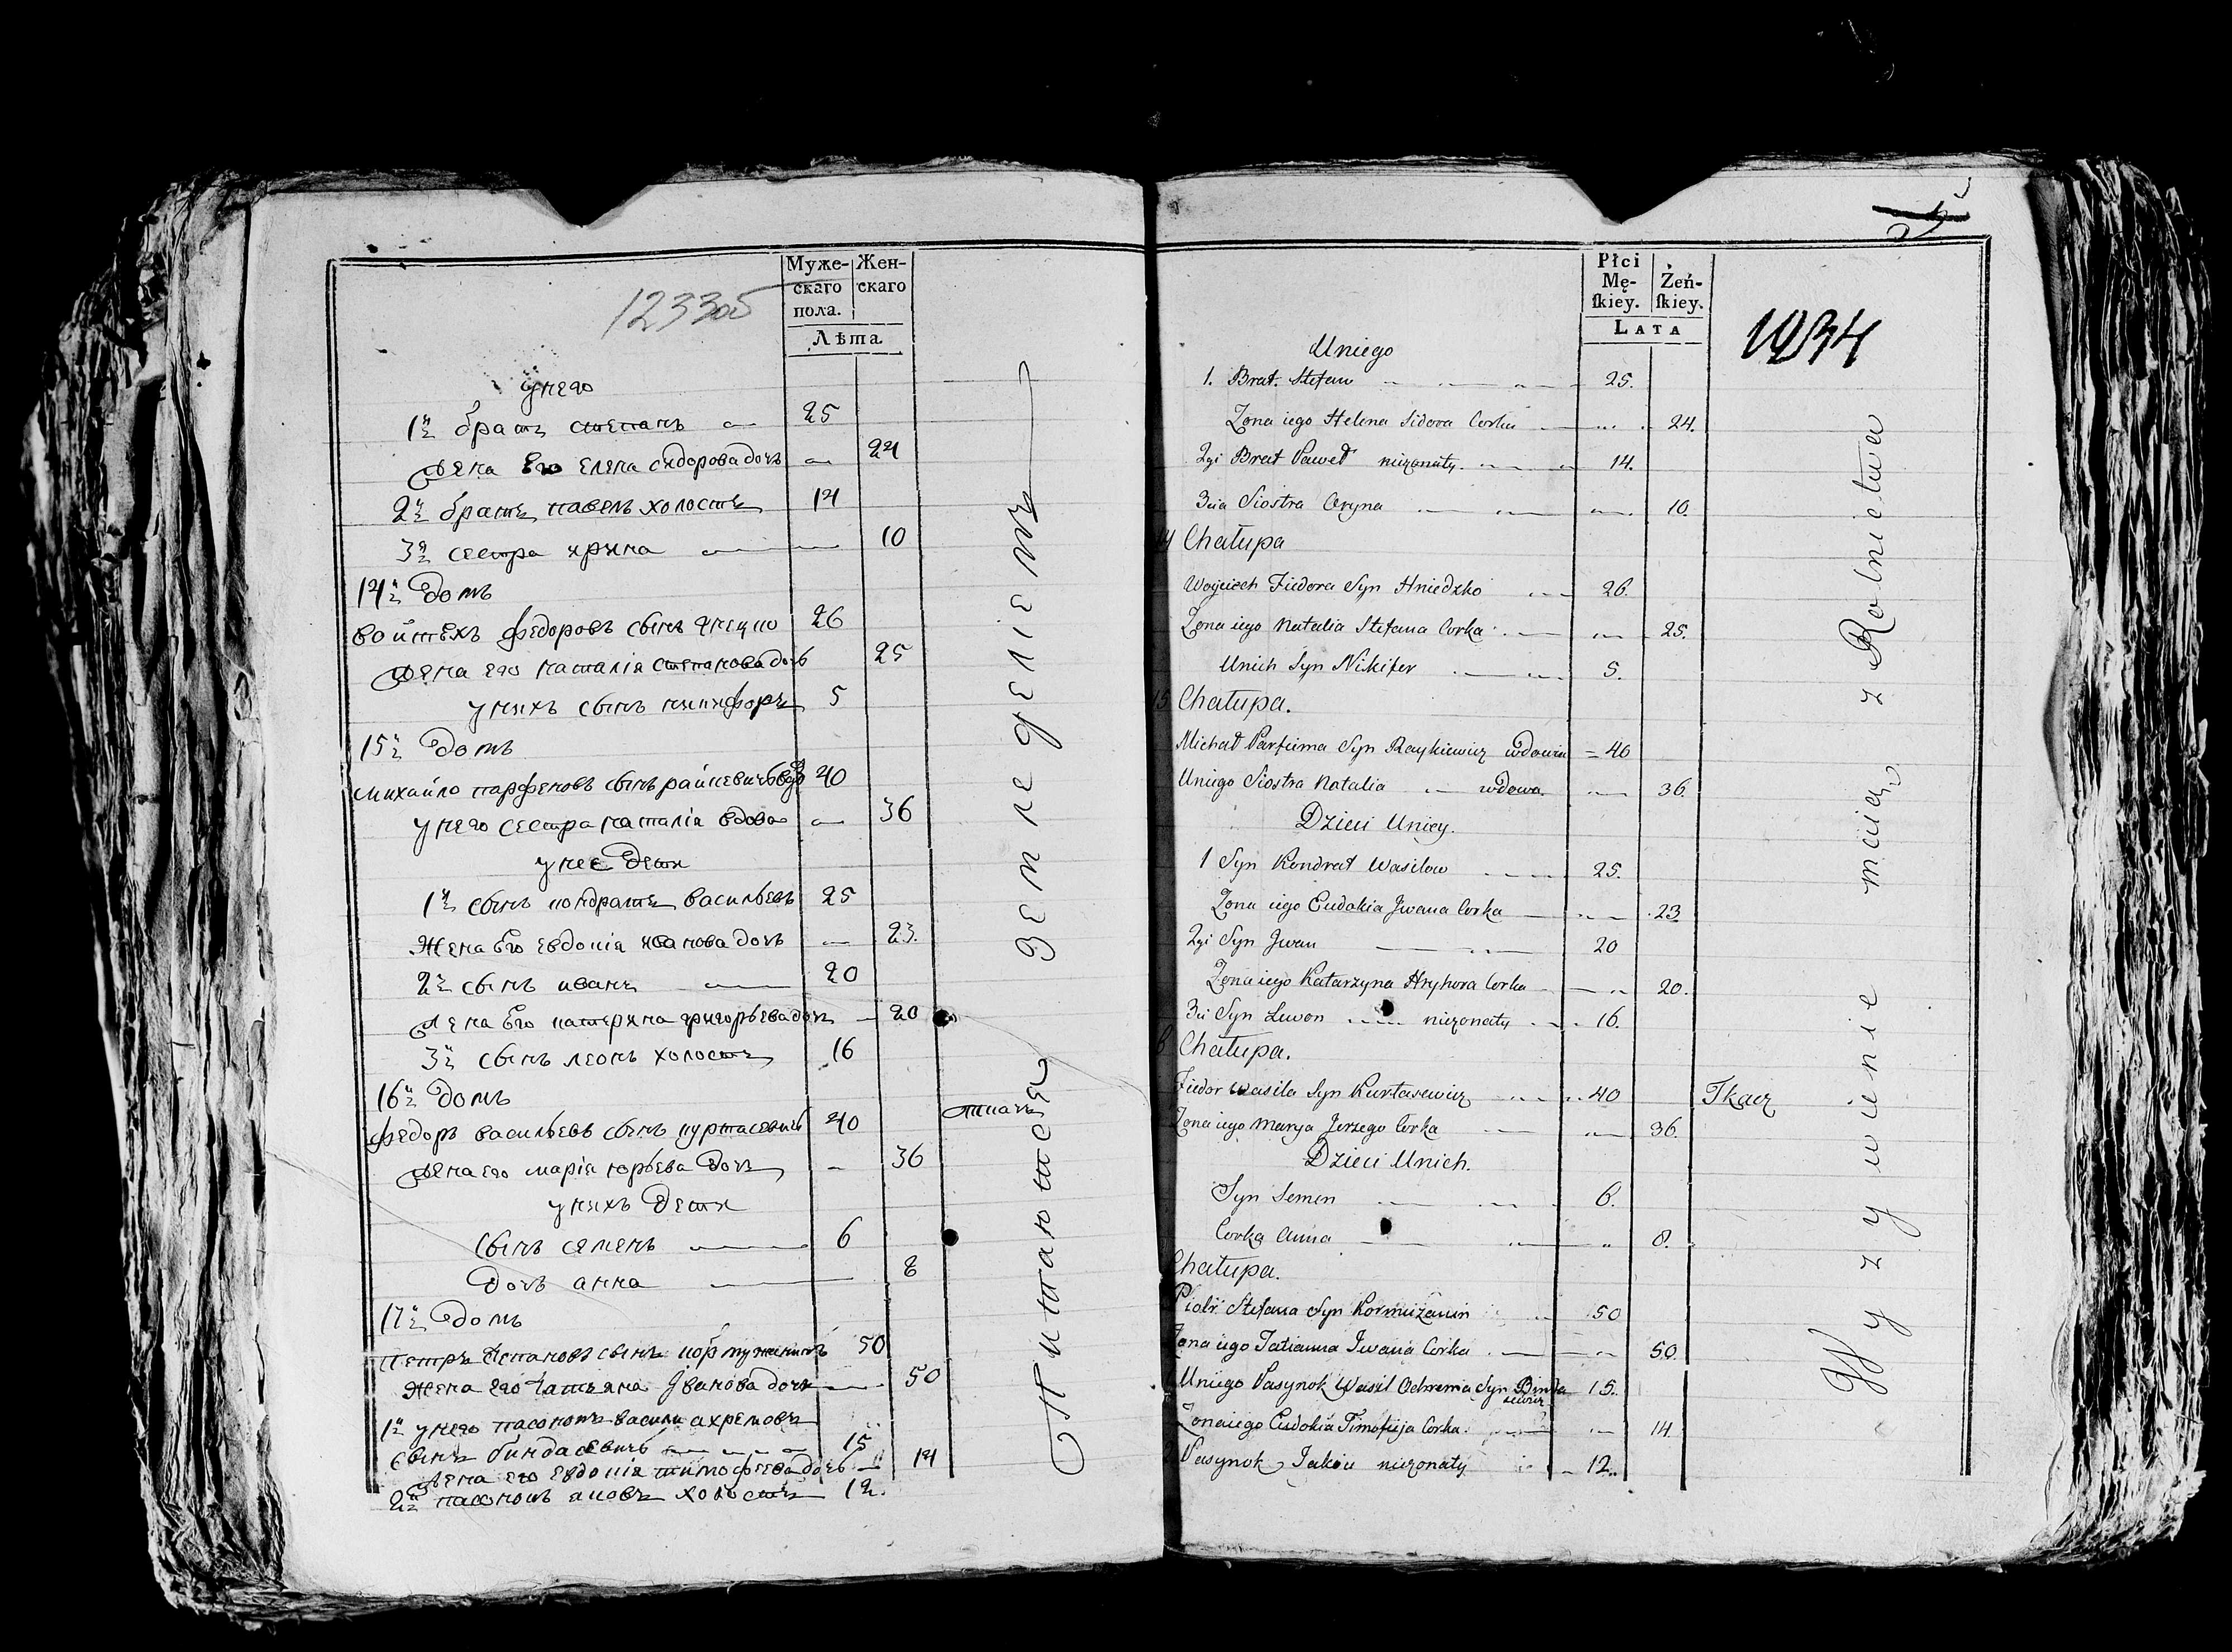 Муже-
скаго
пола.
Жен-
скаго
Лѣта
12330б
унего
1й братъ степанъ 25
жена Его Елена сидорова дочь 24
2й братъ павелъ холостъ 14
3я сестра ирина 10
14й домъ
войтѣхъ федоровъ сынъ гнецко 26
жена его наталія степанова дочь 25
унихъ сынъ никифоръ 5
15й домъ
михайло парфеновъ сынъ райкевичъ 40
унего сестра наталія вдова 36
унее дети
1й сынъ кондратъ васильевъ 25
жена Его евдокія иванова дочь 23.
2й сынъ иванъ 20
жена Его катерина григорьева дочь 20
3й сынъ леонъ холостъ 16
16й домъ
федоръ васильевъ сынъ куртасевичъ 40 ткачъ
жена его марія юрьева дочь 36
унихъ дети
сынъ семенъ 6
дочь анна 8
17й домъ
петръ степановъ сынъ кормуженинъ 50
жена его татьяна Іванова дочь 50
1й унего пасонокъ василь ахремовъ
сынъ биндасевичъ 15
жена его евдокія тимофеева дочь 14
2й пасонокъ яковъ холостъ 12.
земледеліемъ
питаются
Płci
Mę-
skiey.
Żeń-
skiey.
LATA
1034
Uniego
1. Brat. Stefan 25.
Zona iego Helena Sidora Corka 24.
2gi Brat Paweł niezonaty 14.
3cia Siostra Oryna 10.
14 Chałupa
Woyciech Fiedora Syn Hniedzko 26.
Zona iego Natalia Stefana Corka 25.
Unich Syn Nikifer 5.
15 Chałupa.
Michał Parfiima Syn Raykiewicz wdowiec 40
Uniego Siostra Natalia wdowa. 36.
Dzieci Uniey.
1 Syn Kondrat Wasilow 25.
Zona iego Eudokia Jwana Corka 23
2gi Syn Jwan 20
Zona iego Katarzyna Hryhora Corka 20.
3ci Syn Lewon niezonaty 16.
6 Chałupa.
Fiedor Wasila Syn Kurtasewicz 40 Tkacz
Zona iego Marya Jerzego Corka 36.
Dzieci Unich.
Syn Semen 6.
Corka Anna 8.
Chałupa.
Piotr Stefana Syn Kormużanin 50
Zona iego Tatianna Jwana Corka 50.
1 Uniego Pasynok Wasil Ochrema Syn Binda
sewicz 15.
Zona iego Eudokia Timofieja Corka 14.
2 Pasynok Jakow niezonaty 12.
Wyzywienie maią z Rolnictwa